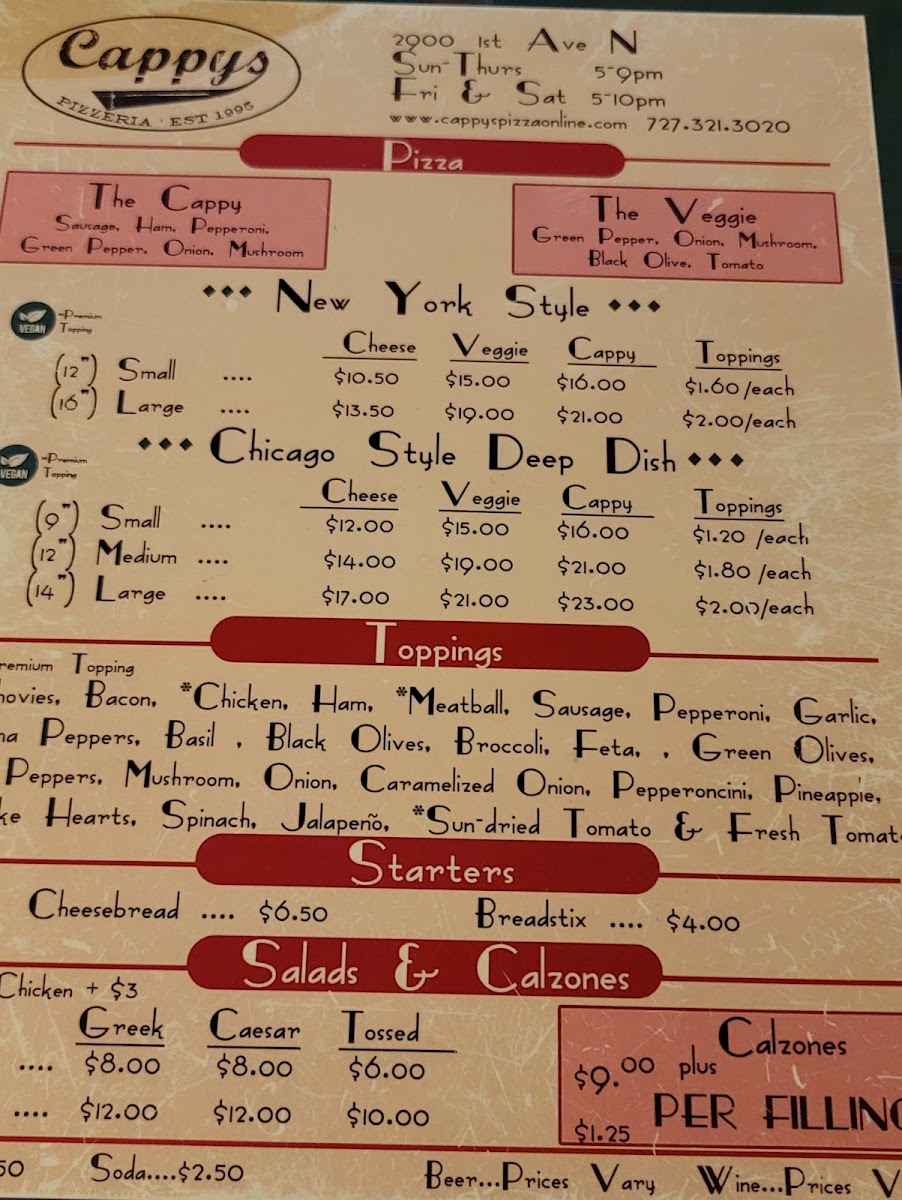 Cappys
PIZZERIA · EST 1995
2900 1st Ave N
Sun-Thurs 5-9pm
Fri & Sat 5-10pm
www.cappyspizzaonline.com 727.321.3020
Pizza
The Cappy
Sausage, Ham, Pepperoni,
Green Pepper, Onion, Mushroom
The Veggie
Green Pepper, Onion, Mushroom,
Black Olive, Tomato
New York Style
VEGAN
=Premium
Topping
Cheese Veggie Cappy Toppings
(12") Small .... $10.50 $15.00 $16.00 $1.60/each
(16") Large .... $13.50 $19.00 $21.00 $2.00/each
Chicago Style Deep Dish
VEGAN
=Premium
Topping
Cheese Veggie Cappy Toppings
(9") Small .... $12.00 $15.00 $16.00 $1.20 /each
(12") Medium .... $14.00 $19.00 $21.00 $1.80 /each
(14") Large .... $17.00 $21.00 $23.00 $2.00/each
Toppings
remium Topping
hovies, Bacon, *Chicken, Ham, *Meatball, Sausage, Pepperoni, Garlic,
na Peppers, Basil , Black Olives, Broccoli, Feta, , Green Olives,
Peppers, Mushroom, Onion, Caramelized Onion, Pepperoncini, Pineapple,
ke Hearts, Spinach, Jalapeño, *Sun-dried Tomato & Fresh Tomat
Starters
Cheesebread .... $6.50 Breadstix .... $4.00
Salads & Calzones
Chicken + $3
Greek Caesar Tossed
.... $8.00 $8.00 $6.00
.... $12.00 $12.00 $10.00
Calzones
$9.00 plus
$1.25 PER FILLING
50 Soda....$2.50 Beer...Prices Vary Wine...Prices V